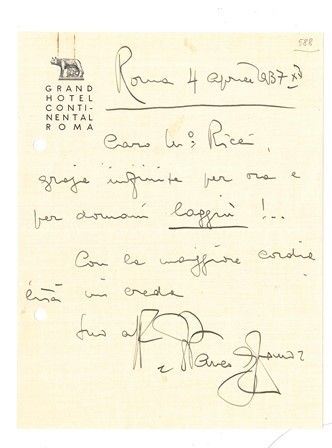 588
GRAND
HOTEL
CONTI-
NENTAL
ROMA
Roma 4 aprile 1937 XV
Caro Mo. Ricci,
grazie infinite per ora e
per domani laggiù !...
Con la maggiore cordia
lità mi creda
suo aff